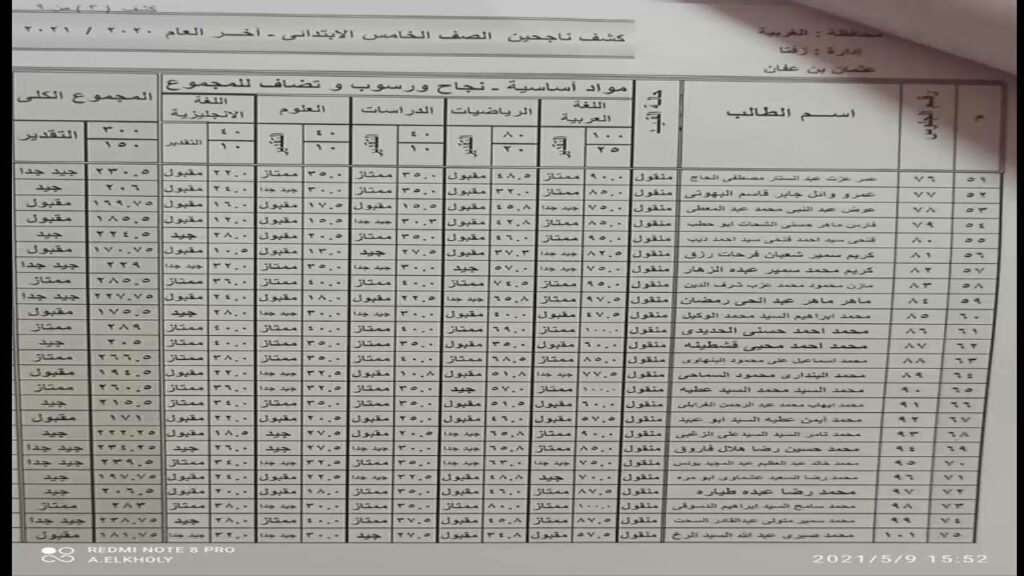 كشف (٣) من ٩
محافظة : الغربية
إدارة : زفتا
عثمان بن عفان
كشف ناجحين الصف الخامس الابتدائى - آخر العام ٢٠٢٠ / ٢٠٢١
م
رقم الجلوس
اسم الطالب
حالة القيد
مواد أساسية - نجاح ورسوب و تضاف للمجموع
المجموع الكلى
اللغة العربية
الرياضيات
الدراسات
العلوم
اللغة الانجليزية
١٠٠ التقدير ٨٠ التقدير ٤٠ التقدير ٤٠ التقدير ٤٠ التقدير ٣٠٠ التقدير
٢٥ ٢٠ ١٠ ١٠ ١٠ ١٥٠
٥١ ٧٦ عمر عزت عبد الستار مصطفى الحاج منقول ٩٠.٠ ممتاز ٤٨.٥ مقبول ٣٥.٠ ممتاز ٣٥.٠ ممتاز ٢٢.٠ مقبول ٢٣٠.٥ جيد جدا
٥٢ ٧٧ عمرو وائل جابر قاسم البهوتى منقول ٨٥.٠ ممتاز ٣٢.٠ مقبول ٣٥.٠ ممتاز ٣٠.٠ جيد جدا ٢٤.٠ مقبول ٢٠٦ جيد
٥٣ ٧٨ عوض عبد النبى محمد عبد المعطى منقول ٧٥.٠ جيد جدا ٤٥.٨ مقبول ١٥.٥ مقبول ١٧.٥ مقبول ١٦.٠ مقبول ١٦٩.٧٥ مقبول
٥٤ ٧٩ فارس ماهر حسنى الشحات ابو حطب منقول ٨٥.٠ ممتاز ٤٢.٨ مقبول ٣٠.٣ جيد جدا ١٥.٥ مقبول ١٢.٠ مقبول ١٨٥.٥ مقبول
٥٥ ٨٠ فتحى سيد احمد فتحى سيد احمد ديب منقول ٩٥.٠ ممتاز ٤٦.٠ مقبول ٣٥.٠ ممتاز ٢٠.٥ مقبول ٢٨.٠ جيد ٢٢٤.٥ جيد
٥٦ ٨١ كريم سمير شعبان فرحات رزق منقول ٨٢.٥ جيد جدا ٣٧.٣ مقبول ٢٧.٥ جيد ١٣.٠ مقبول ١٠.٥ مقبول ١٧٠.٧٥ مقبول
٥٧ ٨٢ كريم محمد سمير عبده الزهار منقول ٧٥.٠ جيد جدا ٥٧.٠ جيد ٣٠.٠ جيد جدا ٣٥.٠ ممتاز ٣٢.٠ جيد جدا ٢٢٩ جيد جدا
٥٨ ٨٣ مازن محمود محمد عزب شرف الدين منقول ٩٥.٥ ممتاز ٧٤.٥ ممتاز ٤٠.٠ ممتاز ٤٠.٠ ممتاز ٣٥.٠ ممتاز ٢٨٥.٥ ممتاز
٥٩ ٨٤ ماهر ماهر عبد الحى رمضان منقول ٩٧.٥ ممتاز ٦٥.٨ جيد جدا ٢٢.٥ مقبول ١٨.٠ مقبول ٢٤.٠ مقبول ٢٢٧.٧٥ جيد جدا
٦٠ ٨٥ محمد ابراهيم السيد محمد الوكيل منقول ٤٧.٥ مقبول ٤٠.٠ مقبول ٣٠.٠ جيد جدا ٣٠.٠ جيد جدا ٢٨.٠ جيد ١٧٥.٥ مقبول
٦١ ٨٦ محمد احمد حسنى الحديدى منقول ١٠٠.٠ ممتاز ٦٩.٠ ممتاز ٤٠.٠ ممتاز ٤٠.٠ ممتاز ٤٠.٠ ممتاز ٢٨٩ ممتاز
٦٢ ٨٧ محمد احمد محيى قشطيله منقول ٦٠.٠ مقبول ٣٥.٠ مقبول ٣٥.٠ ممتاز ٣٥.٠ ممتاز ٤٠.٠ ممتاز ٢٠٥ جيد
٦٣ ٨٨ محمد اسماعيل على محمود البنهاوى منقول ٨٥.٠ ممتاز ٦٨.٥ ممتاز ٤٠.٠ ممتاز ٣٥.٠ ممتاز ٣٨.٠ ممتاز ٢٦٦.٥ ممتاز
٦٤ ٨٩ محمد البندارى محمود السماحى منقول ٧٧.٥ جيد جدا ٥١.٨ مقبول ١٠.٨ مقبول ٣٢.٥ جيد جدا ٢٢.٠ مقبول ١٩٤.٥ مقبول
٦٥ ٩٠ محمد السيد محمد السيد عطيه منقول ١٠٠.٠ ممتاز ٥٧.٠ جيد ٣٥.٠ ممتاز ٣٢.٥ جيد جدا ٣٦.٠ ممتاز ٢٦٠.٥ ممتاز
٦٦ ٩١ محمد ايهاب محمد عبد الرحمن الغرابلى منقول ٦٠.٠ مقبول ٥١.٥ مقبول ٣٥.٠ ممتاز ٣٥.٠ ممتاز ٣٤.٠ ممتاز ٢١٥.٥ جيد
٦٧ ٩٢ محمد ايمن عطيه السيد ابو عبيد منقول ٥٧.٥ مقبول ٤٦.٠ مقبول ٢٥.٠ مقبول ٢٠.٥ مقبول ٢٢.٠ مقبول ١٧١ مقبول
٦٨ ٩٣ محمد تامر السيد السيدعلى الزغبى منقول ٩٠.٠ ممتاز ٦٥.٨ جيد جدا ٢٠.٥ مقبول ٢٧.٥ جيد ١٨.٥ مقبول ٢٢٢.٢٥ جيد
٦٩ ٩٤ محمد حسين رضا هلال فاروق منقول ٨٥.٠ ممتاز ٦٥.٨ جيد جدا ٣٠.٠ جيد جدا ٢٧.٥ جيد ٢٦.٠ جيد ٢٣٤.٢٥ جيد جدا
٧٠ ٩٥ محمد خالد عبد العظيم عبد المجيد يونس منقول ٧٥.٠ جيد جدا ٦٣.٠ جيد جدا ٣٥.٠ ممتاز ٣٢.٥ جيد جدا ٣٤.٠ ممتاز ٢٣٩.٥ جيد جدا
٧١ ٩٦ محمد رضا السعيد عشماوى ابو مره منقول ٧٠.٠ جيد ٤٨.٨ مقبول ٣٢.٥ جيد جدا ٢٢.٥ مقبول ٢٤.٠ مقبول ١٩٧.٧٥ جيد
٧٢ ٩٧ محمد رضا عبده طياره منقول ٨٧.٥ ممتاز ٤٦.٠ مقبول ٣٥.٠ ممتاز ١٨.٠ مقبول ٢٠.٠ مقبول ٢٠٦.٥ جيد
٧٣ ٩٨ محمد سامح السيد ابراهيم الدسوقى منقول ١٠٠.٠ ممتاز ٨٠.٠ ممتاز ٣٥.٠ ممتاز ٤٠.٠ ممتاز ٢٨.٠ جيد ٢٨٣ ممتاز
٧٤ ٩٩ محمد سمير متولى عبدالقادر السحت منقول ٨٧.٥ ممتاز ٤٥.٨ مقبول ٣٧.٥ ممتاز ٤٠.٠ ممتاز ٢٨.٠ جيد ٢٣٨.٧٥ جيد جدا
٧٥ ١٠١ محمد صبرى عبد الله السيد الرخ منقول ٥٧.٥ مقبول ٣٤.٨ مقبول ٢٧.٥ جيد ٣٠.٠ جيد جدا ٣٢.٠ جيد جدا ١٨١.٧٥ مقبول
REDMI NOTE 8 PRO
A.ELKHOLY
2021/5/9 15:52